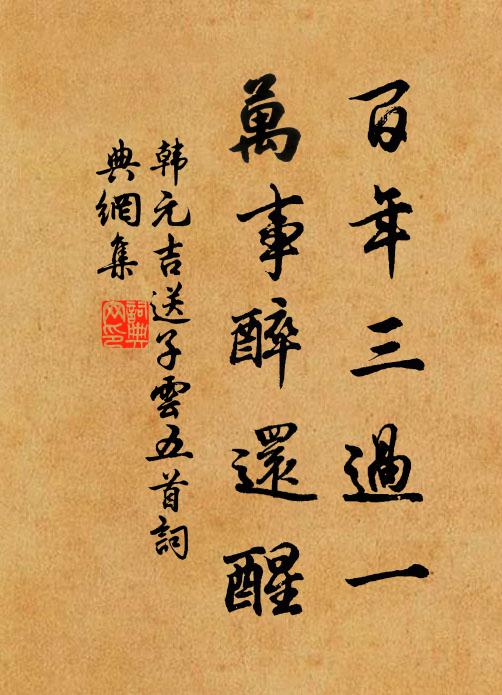 百年三過一
萬事醉還醒
韩元吉送子雲五首詞
典網集
詞典网印